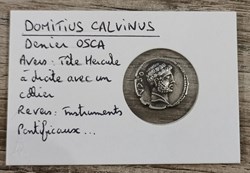 DOMITIUS CALVINUS
Denier OSCA
Avers : Tête Hercule
à droite avec un
collier
Revers : Instruments
Pontificaux...